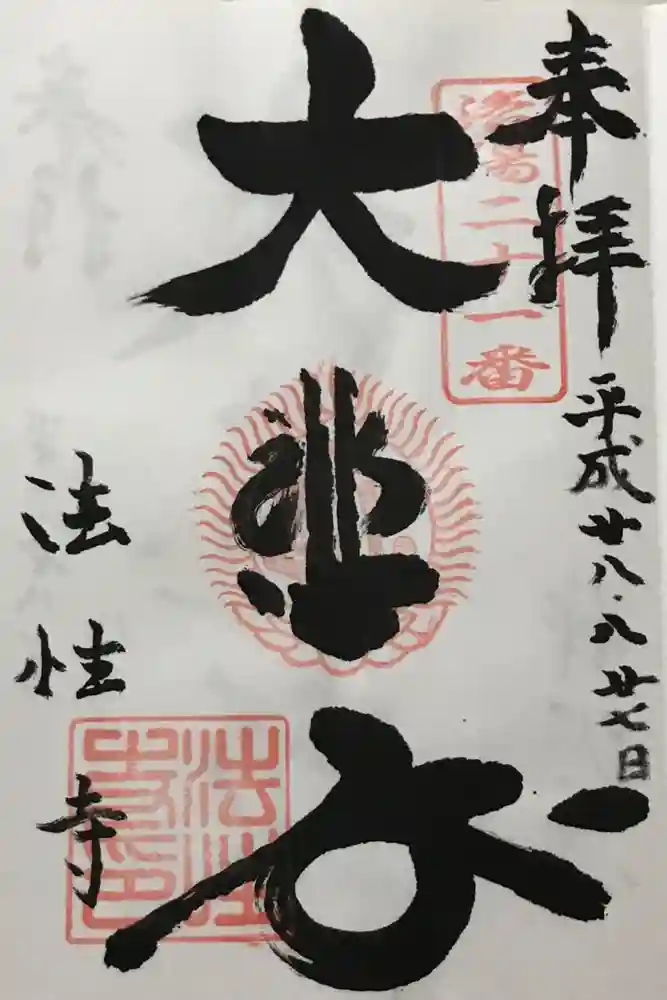 奉拝 平成廿八.八 廿七日
洛陽二十一番
大悲
法性寺
法性寺印